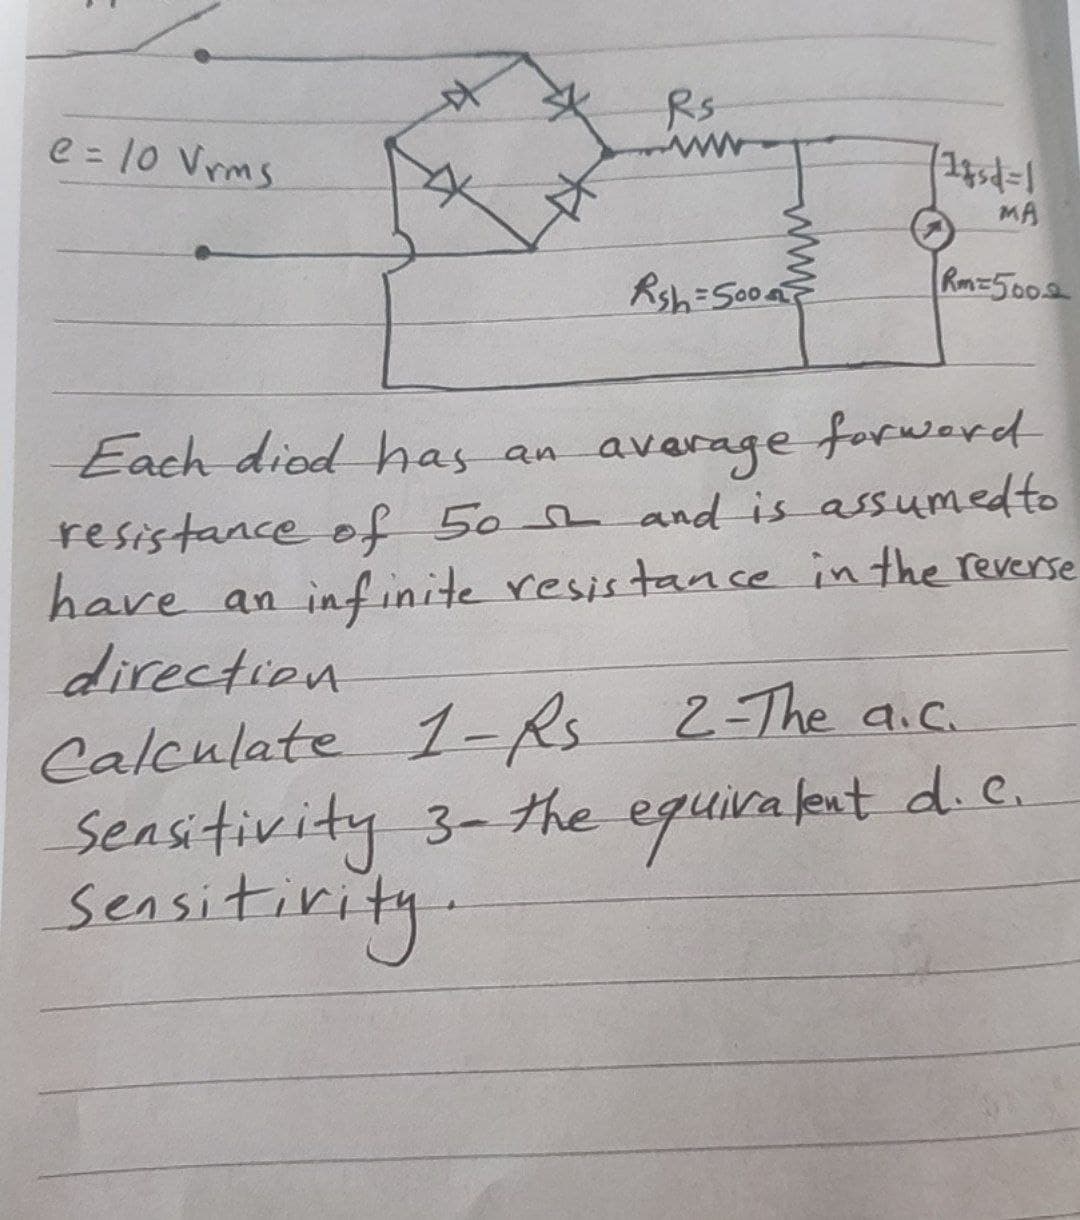 Rs
e = 10 Vrms
Ifsd=1
mA
Rsh=500Ω
Rm=500Ω
Each diod has an avarage forword
resistance of 50 Ω and is assumed to
have an infinite resistance in the reverse
direction
Calculate 1-Rs 2-The a.c.
Sensitivity 3- the equivalent d.c.
Sensitivity.